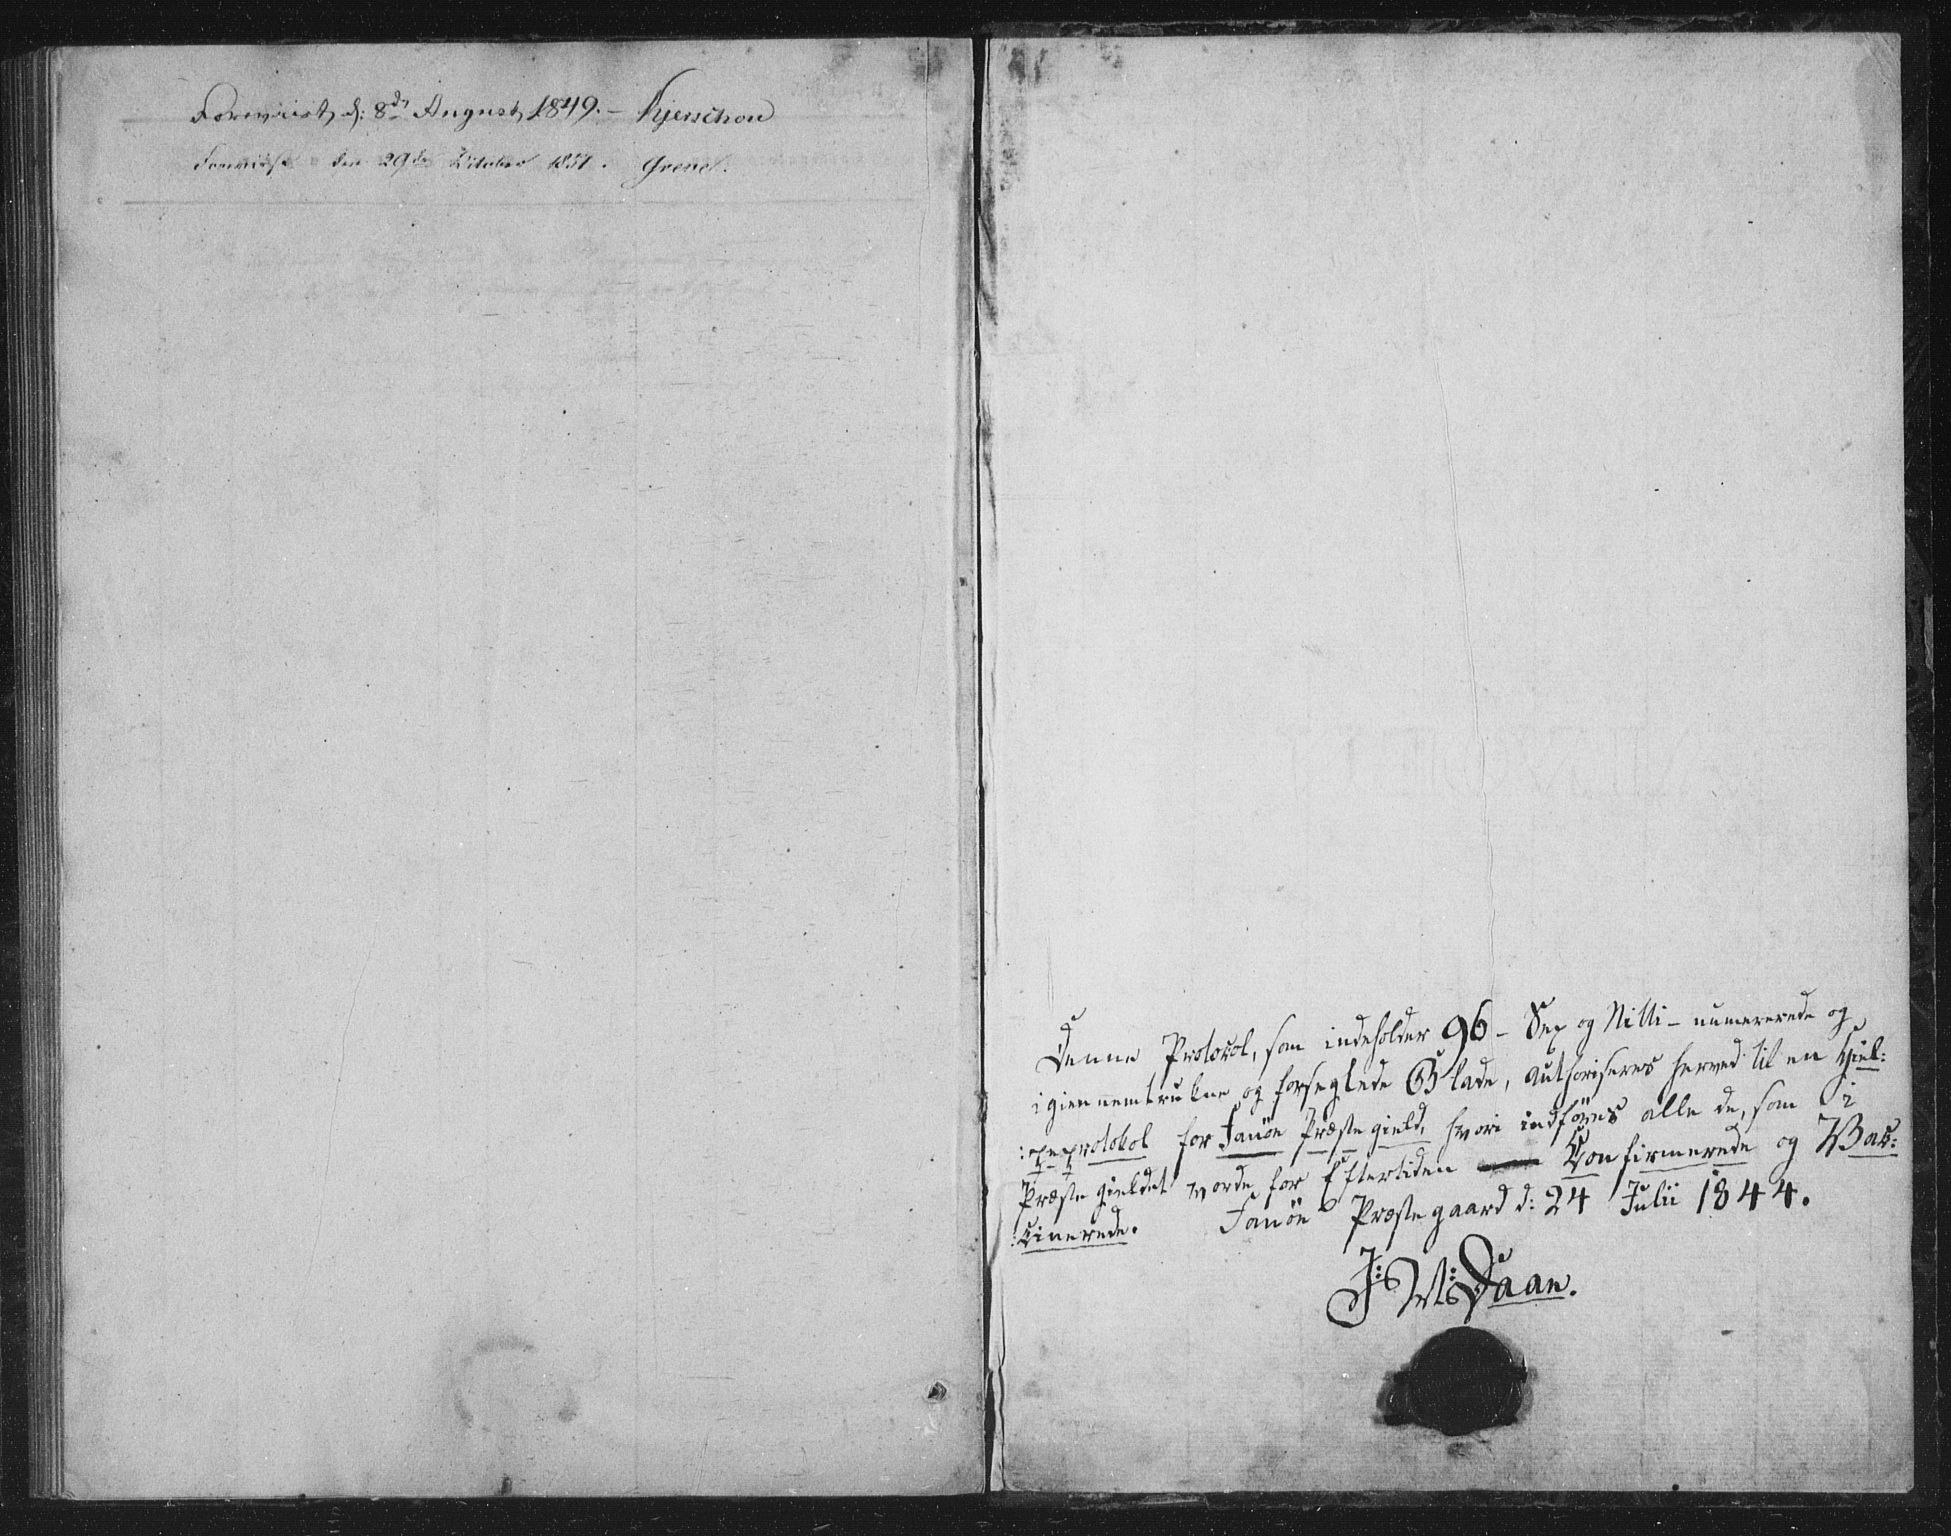 Foreviist d: 8de August 1849. – Kjerschow
Foreviist den 29de October 1851. Greve.
Denne Protocol, som indeholder 96 – Sex og Nitti – numererede og
igiennemtrukne og forseglede Blade, authoriseres herved til en Hjel:
:peprotokol for Janöe Præstegield, hvori indföres alle de, som i
Præstegieldet vorde for Eftertiden Confirmerede og Vac:
:cinerede. Janöe Præstegaard d: 24 Julii 1844.
J: W: Daae.